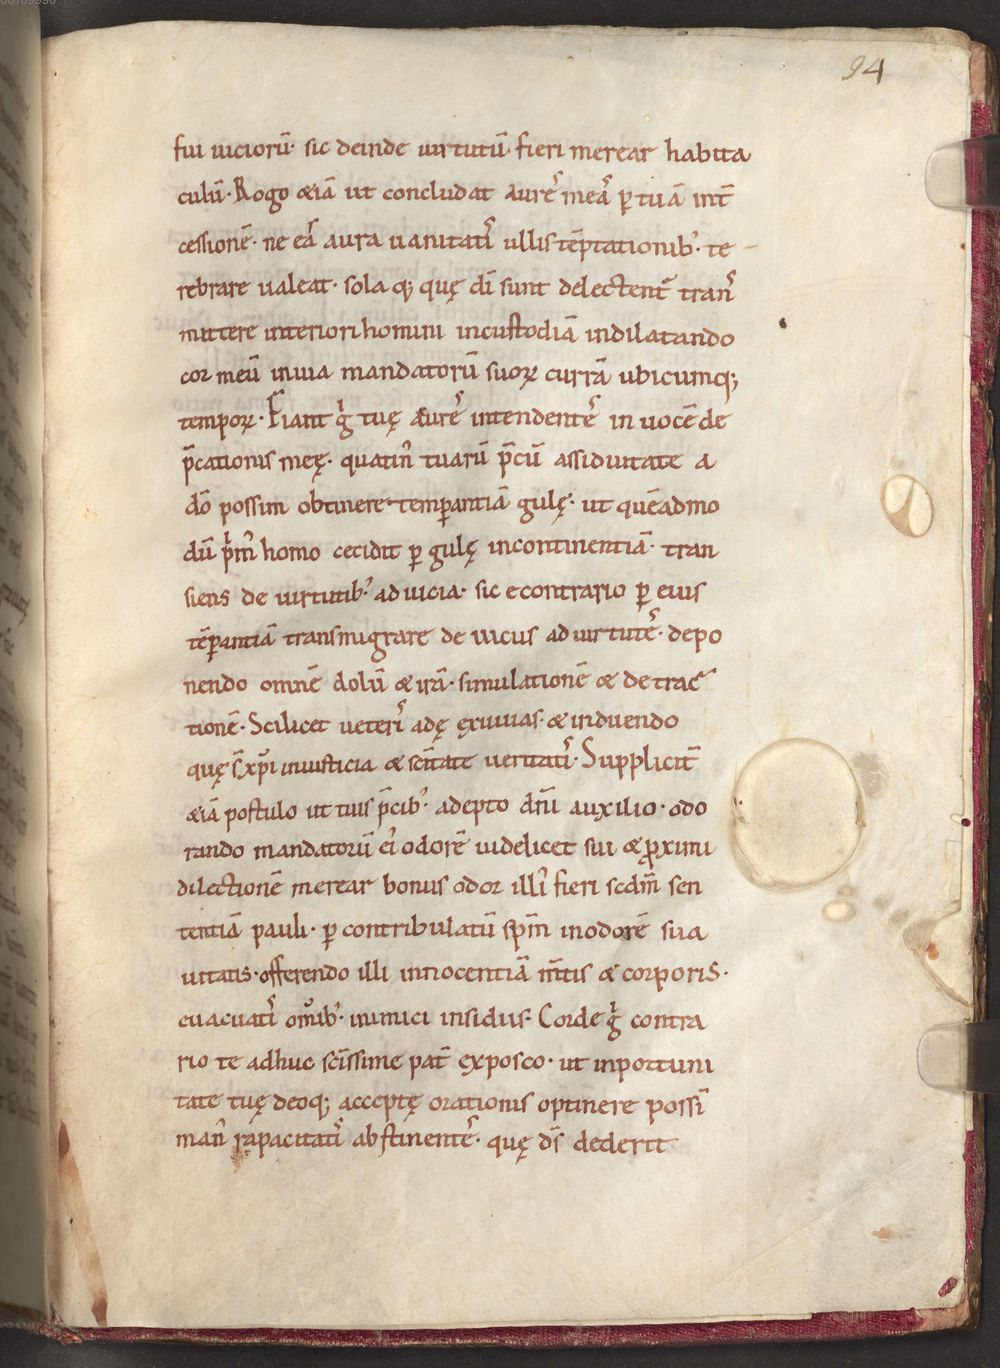 94
fui uiciorū· sic deinde uirtutū· fieri merear habita
culū· Rogo &iā ut concludat aurē meā p̲ tuā int̄
cessionē· ne eā aura uanitatī ullis tēptationib; te
rebrare ualeat· sola q; quę dī sunt delectent̄ trans̄
mittere interiori homini in custodiā in dilatando
cor meū in uia mandatorū suoꝝ currā ubicumq;
tempoꝝ· Fiant g̊ tuę aurē intendentē in uocē de
p̄cationis meę· quatin̄ tuarū p̄cū assiduitate a
dō possim obtinere temꝑantiā gulę· ut quēadmo
dū p̄m̄ homo cecidit ꝑ gulę incontinentiā· tran
siens de uirtutib; ad uicia· sic econtrario ꝑ eius
tēꝑantiā transmigrare de uiciis ad uirtutē· depo
nendo omnē dolū & irā· simulationē & detrac
tionē· Scilicet ueterī adę exuuias· & induendo
quę s̄ xp̄i in iusticia & scītate ueritatī· Supplicit̄
&iā postulo ut tuis p̄cib; adepto dn̄i auxilio· odo
rando mandatorū ei odorē uidelicet sui & ꝓximi
dilectionē merear bonus odor illī fieri scdm̄ sen
tentiā pauli· ꝑ contribulatū spm̄ in odorē sua
uitatis· offerendo illi innocentiā m̄tis & corporis·
euacuatī om̄ib; inimici insidiis· Corde g̊ contra
rio te adhuc scīssime pat̄ exposco· ut inportuni
tate tuę deoq; acceptę orationis optinere possī
man̄ rapacitatī abstinentē· quę dī dederit